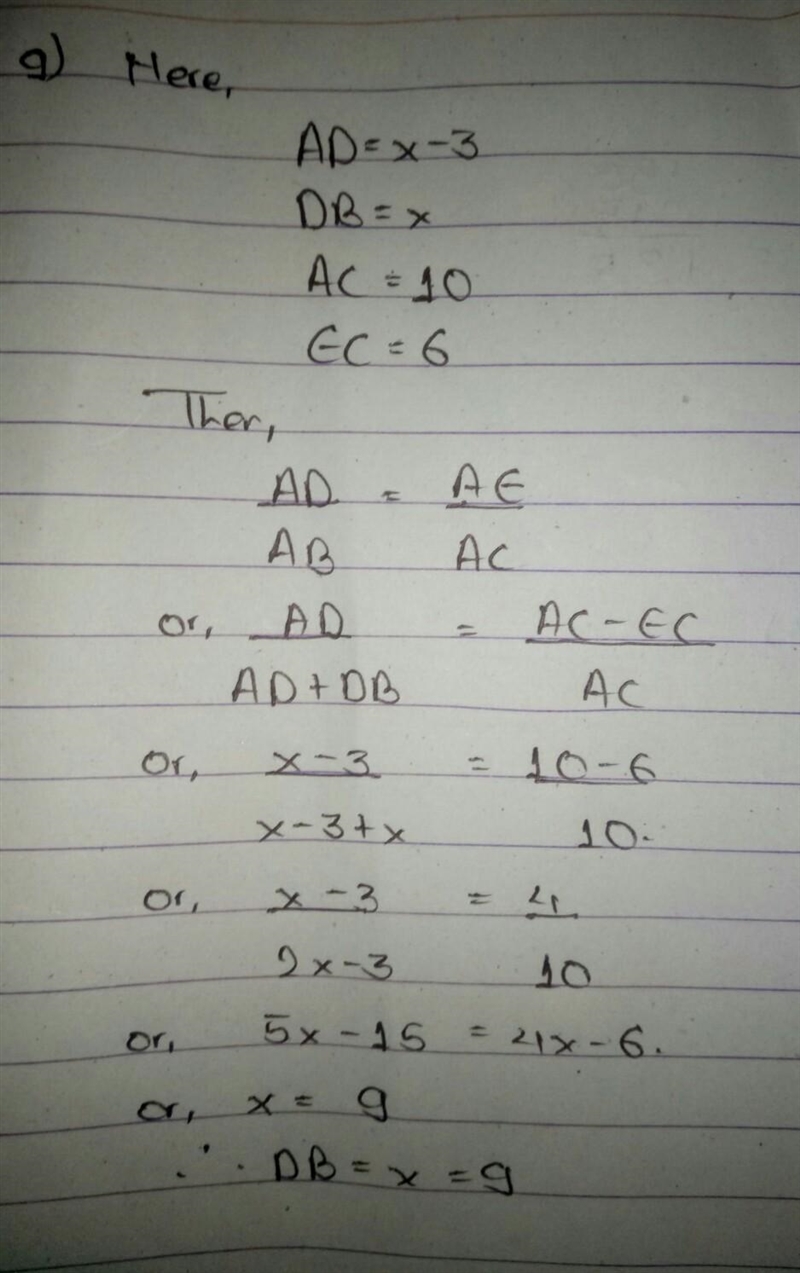 9) Here,
AD = x - 3
DB = x
AC = 10
EC = 6
Then,
AD/AB = AE/AC
or, AD/AD + DB = AC - EC/AC
or, x - 3/x - 3 + x = 10 - 6/10.
or, x - 3/2x - 3 = 4/10
or, 5x - 15 = 4x - 6.
or, x = 9
∴ DB = x = 9